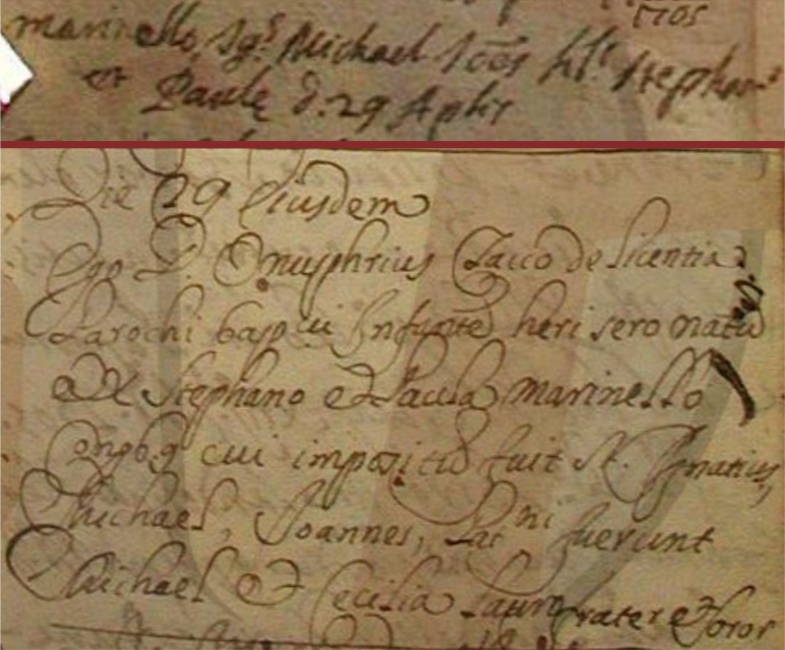 1705
Marinello, Igs Michael Ioes fils Stephani
et Paulę d. 29 Aplis
Die 29 Eiusdem
Ego D. Onuphrius Zacco de licentia D.
Parochi bapcui Infante heri sero natu
Ex Stephano et Paula Marinello
Congbq cui impositu fuit N. Ignatius,
Michael, Joannes, Patni fuerunt
Michael et Cecilia Lauri frater et soror